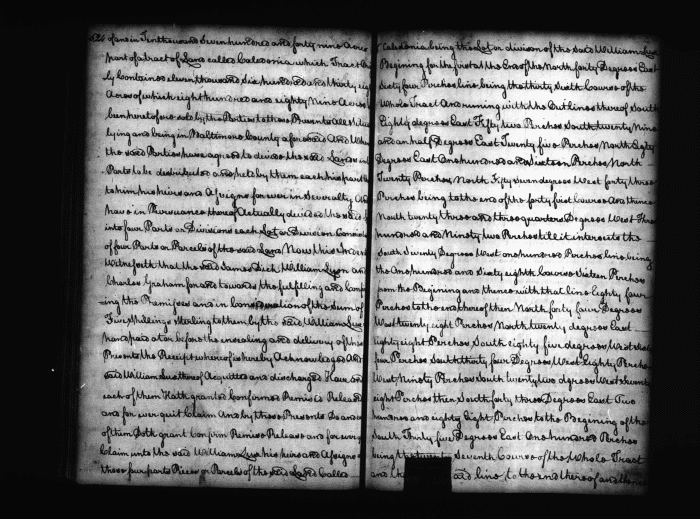 of and in Ten thousand Seven hundred and forty nine Acres
part of a tract of Land called Caledonia which Tract
ly Contains eleven thousand Six hundred and thirty eig
Acres of which eight hundred and eighty Nine Acres
been heretofore sold by the Parties to these Presents All
lying and being in Baltimore County aforesaid And Whe
the said Parties have agreed to divide the said Land
Parts to be distributed and held by them each his part
to him his heirs and Assigns forever in Severalty
have in Pursuance thereof Actually divided the said
into four Parts or Divisions each Lot or Division Consis
of four Parts or Parcels of the said Land Now this Inden
Witnesseth that the said James Dick William Lyon and
Charles Graham for and towards the fulfilling and
ing the Premises and in Consideration of the Sum of
Five Shillings Sterling to them by the said William Lux
hand paid at or before the ensealing and delivery of these
Presents the Receipt whereof is hereby Acknowledged And
said William Lux thereof Acquitted and discharged Have and
each of them Hath granted Confirmed Remised Released
and for ever quit Claim And by these Presents Do and
of them Doth grant Confirm Remise Release and for ever
Claim unto the said William Lux his heirs and Assigns
those four parts Pieces or Parcels of the said Land Called
Caledonia being the Lot or division of the said William Lux
Begining for the first at the End of the North forty Degrees East
Sixty four Perches line being the thirty Sixth Course of the
Whole Tract And runing with the Out lines thereof South
Eighty degrees East Fifty two Perches South twenty Nine
and an half Degrees East Twenty five Perches North Eighty
Degrees East One hundred and Sixteen Perches North
Twenty Perches North Fifty Seven degrees West forty three
Perches being to the end of the forty first Course And thence
North twenty three and three quarters Degrees West Three
hundred and Ninety two Perches till it intersects the
South Seventy Degrees West one hundred Perches line being
the One hundred and Sixty eighth Course Sixteen Perches
from the Begining and thence with that line Eighty four
Perches to the end thereof then North forty four Degrees
West twenty eight Perches North twenty degrees East
eighty eight Perches South eighty four degrees West
four Perches South thirty four Degrees West Eighty Perches
West Ninety Perches South twenty two degrees West
eight Perches then South forty three Degrees East Two
hundred and eighty Eight Perches to the Begining of the
South Thirty five Degrees East One hundred Perches
being the Seventh Course of the Whole Tract
and said line to the end thereof and